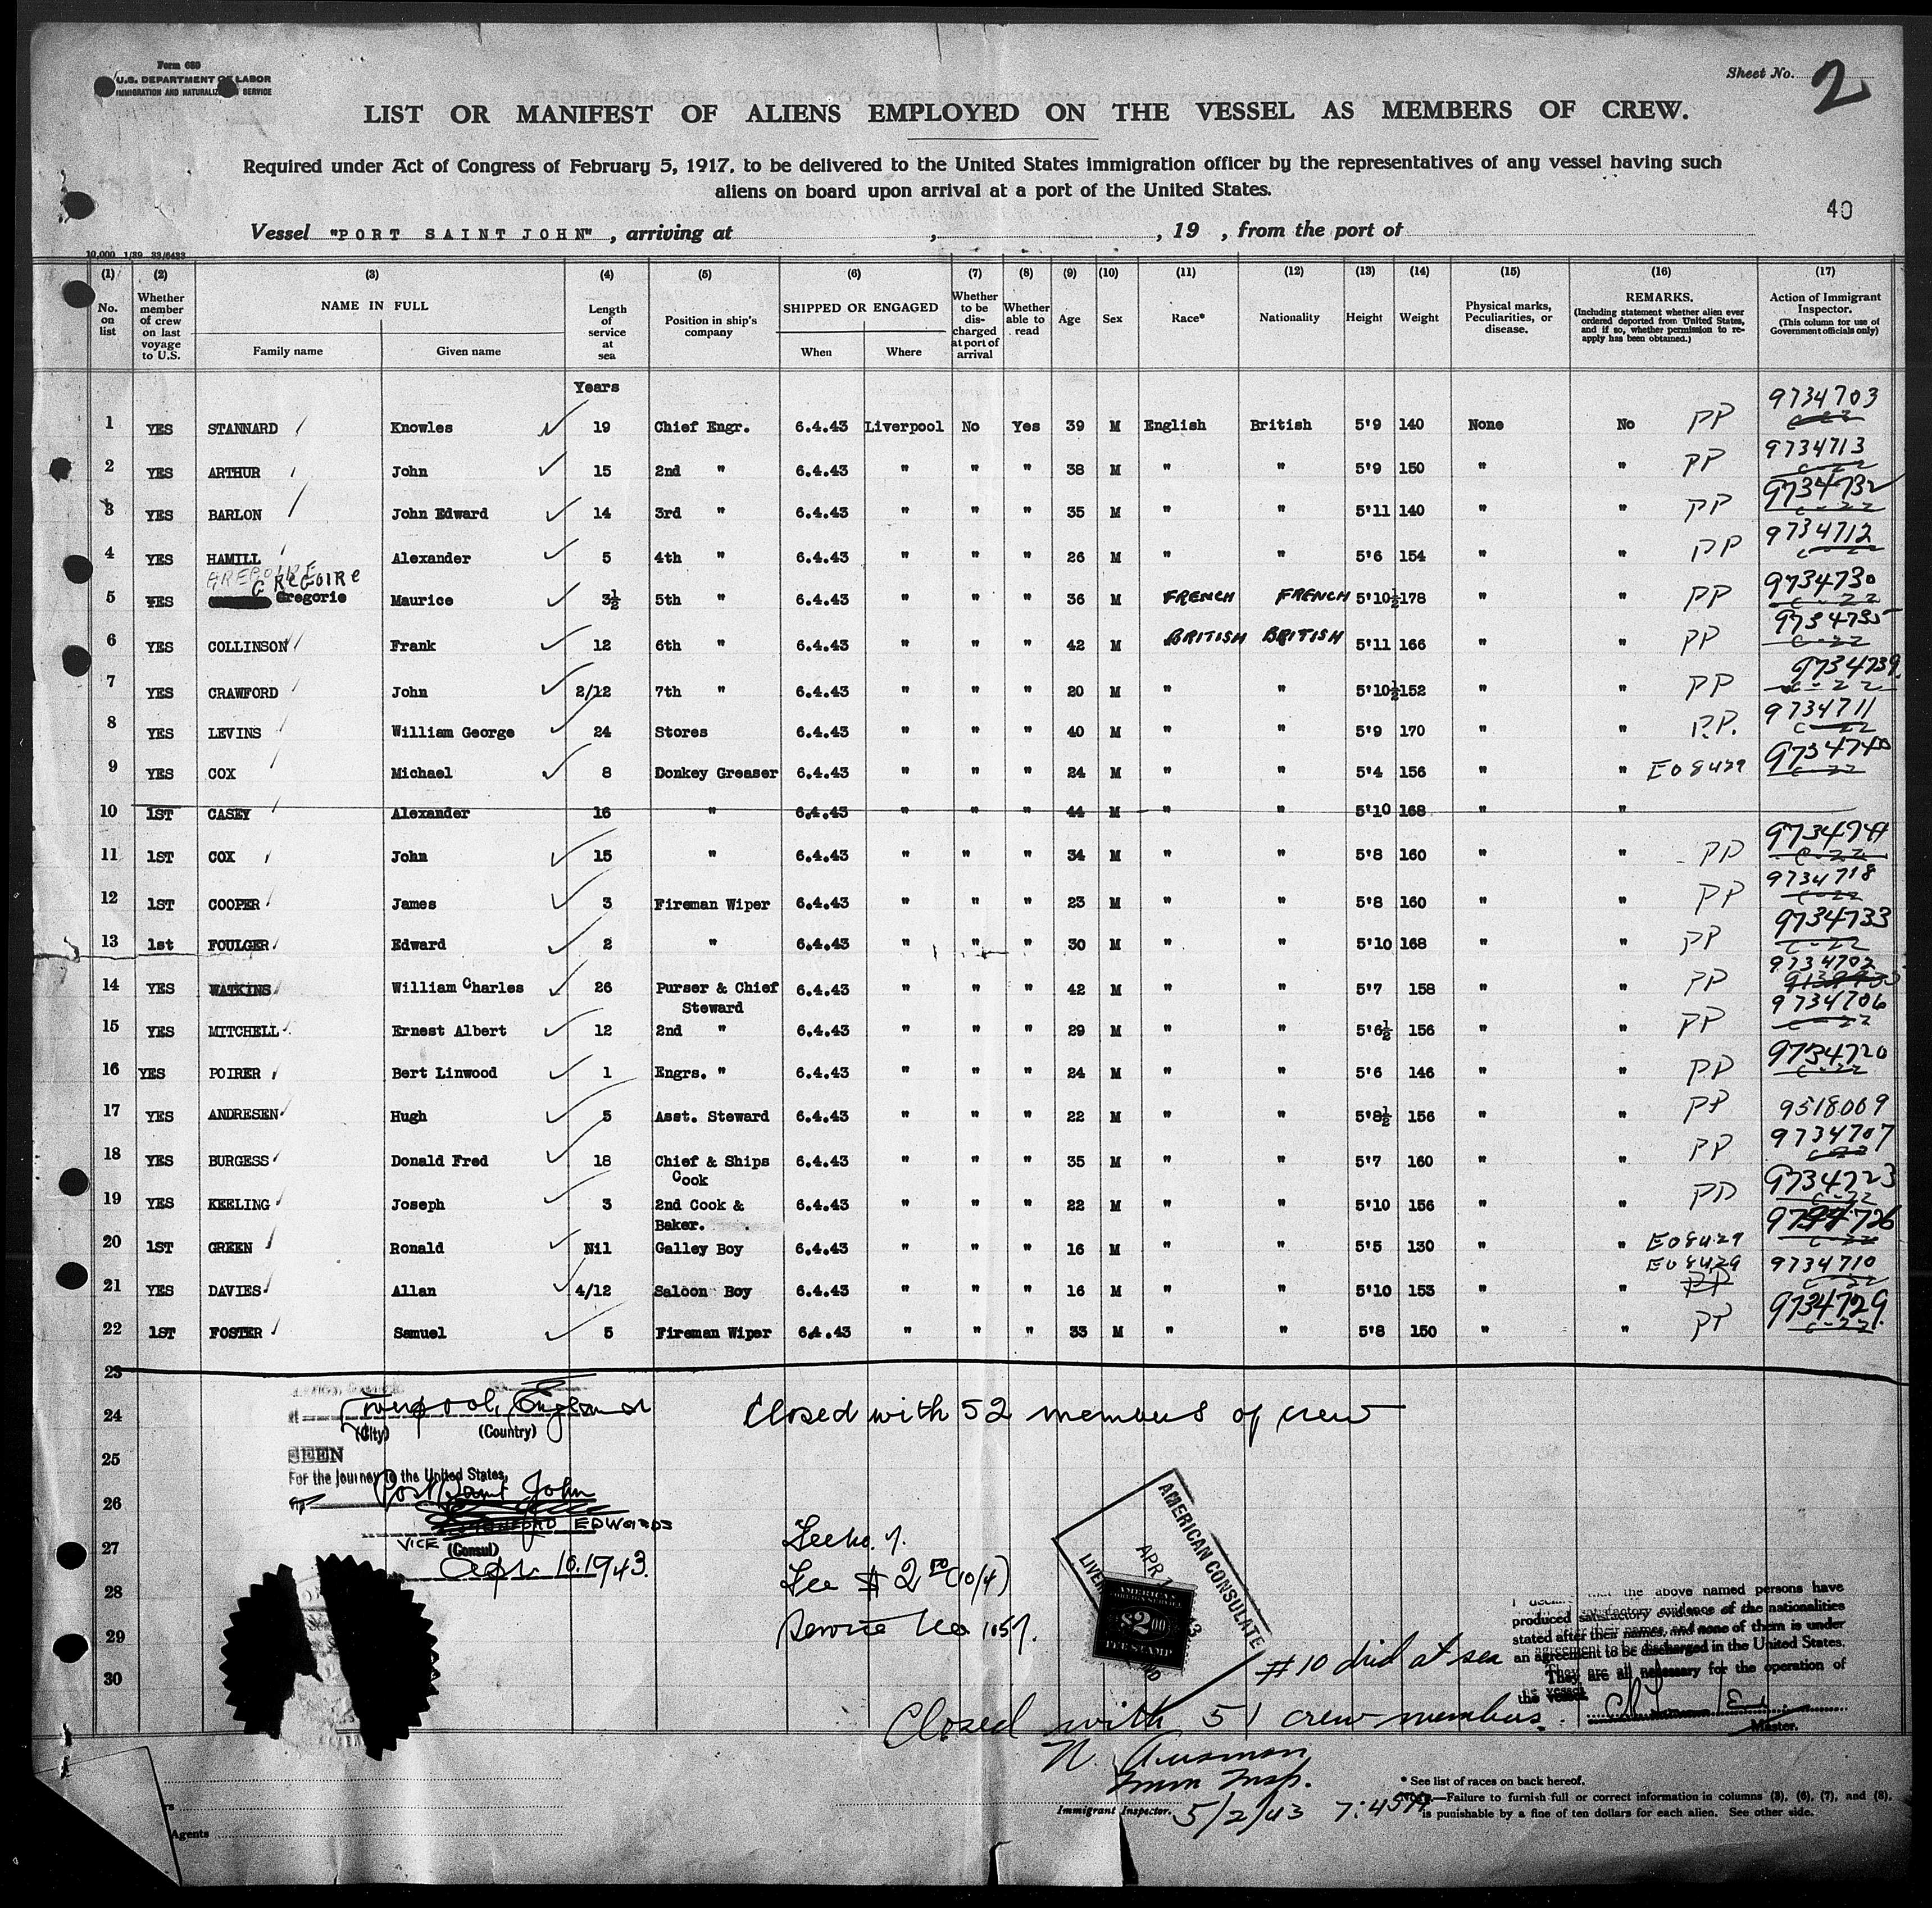 Form 689
U.S. DEPARTMENT OF LABOR
IMMIGRATION AND NATURALIZATION SERVICE
Sheet No. 2
LIST OR MANIFEST OF ALIENS EMPLOYED ON THE VESSEL AS MEMBERS OF CREW.
Required under Act of Congress of February 5, 1917, to be delivered to the United States immigration officer by the representatives of any vessel having such
aliens on board upon arrival at a port of the United States.
40
Vessel "PORT SAINT JOHN", arriving at , , 19 , from the port of
10,000 1/39 33/6433
(1) (2) (3) (4) (5) (6) (7) (8) (9) (10) (11) (12) (13) (14) (15) (16) (17)
No. on list
Whether member of crew on last voyage to U.S.
NAME IN FULL
Family name Given name
Length of service at sea
Position in ship's company
SHIPPED OR ENGAGED
When Where
Whether to be discharged at port of arrival
Whether able to read
Age Sex Race* Nationality Height Weight
Physical marks, Peculiarities, or disease.
REMARKS.
(Including statement whether alien ever ordered deported from United States, and if so, whether permission to re-apply has been obtained.)
Action of Immigrant Inspector.
(This column for use of Government officials only)
Years
1 YES STANNARD Knowles 19 Chief Engr. 6.4.43 Liverpool No Yes 39 M English British 5'9 140 None No PP 9734703
2 YES ARTHUR John 15 2nd " 6.4.43 " " " 38 M " " 5'9 150 " " PP 9734713 C-22
3 YES BARLON John Edward 14 3rd " 6.4.43 " " " 35 M " " 5'11 140 " " PP 9734732 C-22
4 YES HAMILL Alexander 5 4th " 6.4.43 " " " 26 M " " 5'6 154 " " PP 9734712 C-22
GREGOIRE
5 YES Gregorie Maurice 3½ 5th " 6.4.43 " " " 36 M FRENCH FRENCH 5'10½ 178 " " PP 9734730 C-22
6 YES COLLINSON Frank 12 6th " 6.4.43 " " " 42 M BRITISH BRITISH 5'11 166 " " PP 9734735 C-22
7 YES CRAWFORD John 2/12 7th " 6.4.43 " " " 20 M " " 5'10½ 152 " " PP 9734739 C-22
8 YES LEVINS William George 24 Stores 6.4.43 " " " 40 M " " 5'9 170 " " P.P. 9734711 C-22
9 YES COX Michael 8 Donkey Greaser 6.4.43 " " " 24 M " " 5'4 156 " " EO 8429 9734740 C-22
10 1ST CASEY Alexander 16 " 6.4.43 " " " 44 M " " 5'10 168 " "
11 1ST COX John 15 " 6.4.43 " " " 34 M " " 5'8 160 " " PP 9734741 C-22
12 1ST COOPER James 3 Fireman Wiper 6.4.43 " " " 23 M " " 5'8 160 " " PP 9734718 C-22
13 1st FOULGER Edward 2 " 6.4.43 " " " 30 M " " 5'10 168 " " PP 9734733 C-22
14 YES WATKINS William Charles 26 Purser & Chief Steward 6.4.43 " " " 42 M " " 5'7 158 " " PP 9734702
15 YES MITCHELL Ernest Albert 12 2nd " 6.4.43 " " " 29 M " " 5'6½ 156 " " PP 9734706 C-22
16 YES POIRER Bert Linwood 1 Engrs. " 6.4.43 " " " 24 M " " 5'6 146 " " PP 9734720 C-22
17 YES ANDRESEN Hugh 5 Asst. Steward 6.4.43 " " " 22 M " " 5'8½ 156 " " PP 9518069
18 YES BURGESS Donald Fred 18 Chief & Ships Cook 6.4.43 " " " 35 M " " 5'7 160 " " PP 9734707
19 YES KEELING Joseph 3 2nd Cook & Baker. 6.4.43 " " " 22 M " " 5'10 156 " " PP 9734723 C-22
20 1ST GREEN Ronald Nil Galley Boy 6.4.43 " " " 16 M " " 5'5 130 " " EO 8429 9734726 C-22
21 YES DAVIES Allan 4/12 Saloon Boy 6.4.43 " " " 16 M " " 5'10 153 " " EO 8429 PP 9734710 C-22
22 1ST FOSTER Samuel 5 Fireman Wiper 6.4.43 " " " 33 M " " 5'8 150 " " PP 9734729 C-22
23
24 Liverpool, England Closed with 52 members of crew
(City) (Country)
25 SEEN
For the journey to the United States,
26 Port Saint John
EDWARDS
27 VICE (Consul)
Apr. 10. 1943.
28 Fee $ 2.00 (10/4)
29 Service No 1057.
30
AMERICAN CONSULATE
APR
AMERICAN
FOREIGN SERVICE
$2.00
FEE STAMP
the above named persons have
produced satisfactory evidence of the nationalities
stated after their names, and none of them is under
an agreement to be discharged in the United States.
They are all necessary for the operation of
the vessel.
Master.
#10 died at sea
Closed with 51 crew members.
Imm Insp.
Immigrant Inspector. 5/2/43 7:45
* See list of races on back hereof.
NOTE.—Failure to furnish full or correct information in columns (3), (6), (7), and (8),
is punishable by a fine of ten dollars for each alien. See other side.
Agents